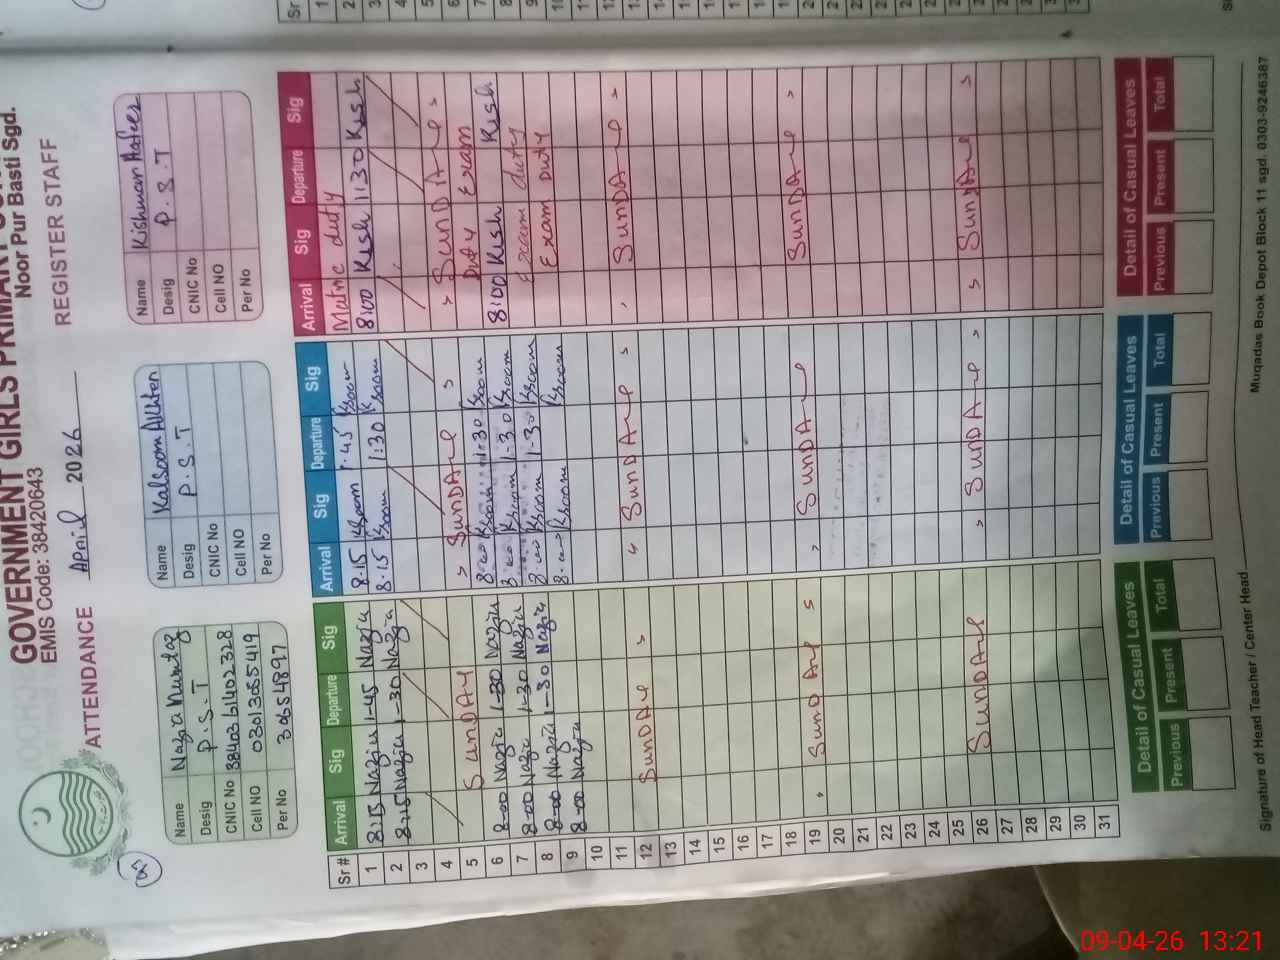 GOVERNMENT GIRLS PRIMARY
Noor Pur Basti Sgd.
EMIS Code: 38420643
ATTENDANCE April 2026 REGISTER STAFF
Name Nazia
Desig P.S.T
CNIC No 3840361402328
Cell NO 03013055419
Per No 30654897
Name Kalsoom Akhter
Desig P.S.T
CNIC No
Cell NO
Per No
Name Kishwar
Desig P.S.T
CNIC No
Cell NO
Per No
Sr # Arrival Sig Departure Sig Arrival Sig Departure Sig Arrival Sig Departure Sig
1 8:15 Nazia 1-45 Nazia 8:15 Ksoom 1:45 Ksoom Matric duty
2 8:15 Nazia 1-30 Nazia 8:15 Ksoom 1:30 Ksoom 8:00 Kish 1130 Kish
3
4
5 SUNDAY SUNDAY SUNDAY
6 8-00 Nazia 1-30 Nazia 8:00 Ksoom 1:30 Ksoom Duty Exam
7 8-00 Nazia 1-30 Nazia 8:00 Ksoom 1-30 Ksoom 8:00 Kish Kish
8 8-00 Nazia 1-30 Nazia 8:00 Ksoom 1-30 Ksoom Exam duty
9 8-00 Nazia 8:00 Ksoom Ksoom Exam Duty
10
11
12 SUNDAY SUNDAY SUNDAY
13
14
15
16
17
18
19 SUNDAY SUNDAY SUNDAY
20
21
22
23
24
25
26 SUNDAY SUNDAY SUNDAY
27
28
29
30
31
Detail of Casual Leaves Detail of Casual Leaves Detail of Casual Leaves
Previous Present Total Previous Present Total Previous Present Total
Signature of Head Teacher / Center Head
Muqadas Book Depot Block 11 sgd. 0303-9246387
09-04-26 13:21